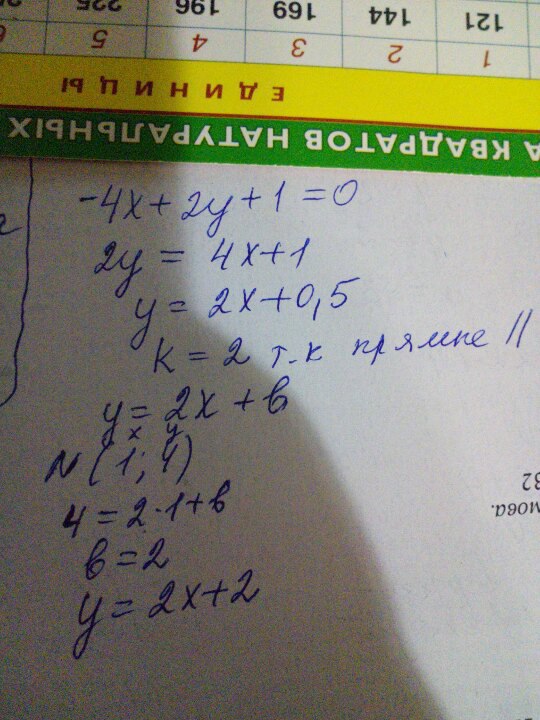 121 144 169 196 225
1 2 3 4 5 6
ЕДИНИЦЫ
А КВАДРАТОВ НАТУРАЛЬНЫХ
-4x+2y+1=0
2y = 4x+1
y = 2x+0,5
k = 2 т.к прямые ||
y = 2x+в
x y
N(1;4)
4=2·1+в
в=2
y = 2x+2
мова.
32